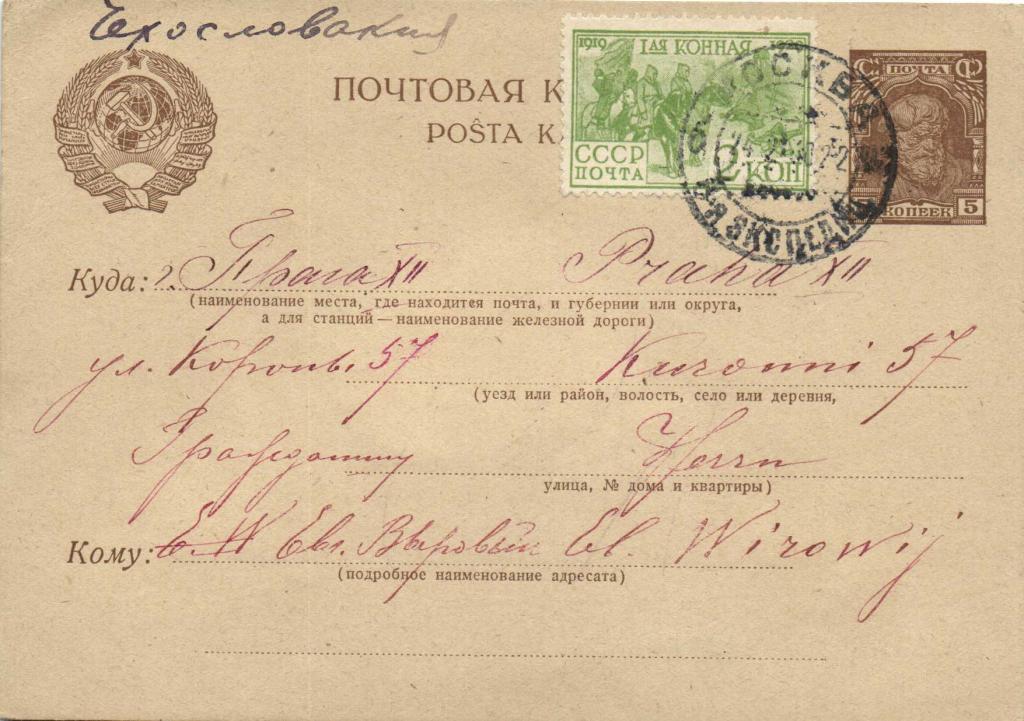 Чехословакия
ПОЧТОВАЯ К
POŜTA K
1919 Iая КОННАЯ
СССР
ПОЧТА 2 КОП
МОСКВА
ЭКСПЕДИЦ
С. ПОЧТА Ф
КОПЕЕК 5
Куда: г. Прага XII Praha XII
(наименование места, где находится почта, и губернии или округа,
а для станций—наименование железной дороги)
ул. Корон. 57 Kuronni 57
(уезд или район, волость, село или деревня,
Гражданину Herrn
улица, № дома и квартиры)
Кому: Евг. Выровый El. Wirowij
(подробное наименование адресата)